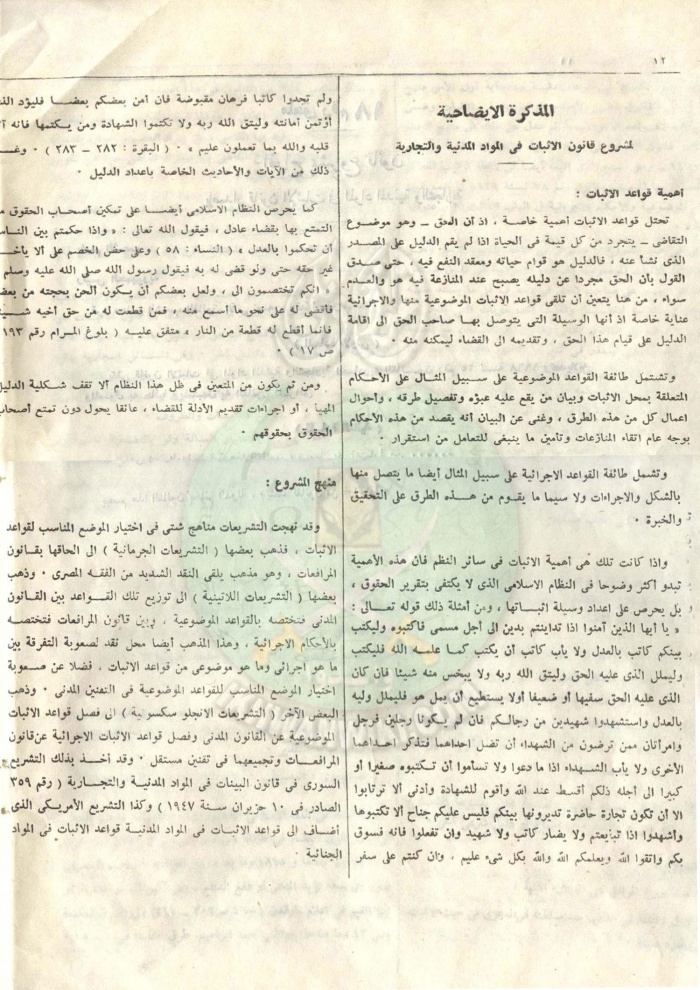 ١٢
المذكرة الايضاحية
لمشروع قانون الاثبات فى المواد المدنية والتجارية
أهمية قواعد الاثبات :
تحتل قواعد الاثبات أهمية خاصة ، اذ أن الحق ــ وهو موضوع
التقاضى ــ يتجرد من كل قيمة فى الحياة اذا لم يقم الدليل على المصدر
الذى نشأ عنه ، فالدليل هو قوام حياته ومعقد النفع فيه ، حتى صدق
القول بأن الحق مجردا عن دليله يصبح عند المنازعة فيه هو والعدم
سواء ، من هنا يتعين أن تلقى قواعد الاثبات الموضوعية منها والاجرائية
عناية خاصة اذ أنها الوسيلة التى يتوصل بها صاحب الحق الى اقامة
الدليل على قيام هذا الحق ، وتقديمه الى القضاء ليمكنه منه ٠
وتشتمل طائفة القواعد الموضوعية على سبيل المثال على الأحكام
المتعلقة بمحل الاثبات وبيان من يقع عليه عبؤه وتفصيل طرقه ، وأحوال
اعمال كل من هذه الطرق ، وغنى عن البيان أنه يقصد من هذه الأحكام
بوجه عام اتقاء المنازعات وتأمين ما ينبغى للتعامل من استقرار ٠
وتشمل طائفة القواعد الاجرائية على سبيل المثال أيضا ما يتصل منها
بالشكل والاجراءات ولا سيما ما يقوم من هذه الطرق على التحقيق
والخبرة ٠
واذا كانت تلك هى أهمية الاثبات فى سائر النظم فان هذه الأهمية
تبدو أكثر وضوحا فى النظام الاسلامى الذى لا يكتفى بتقرير الحقوق ،
بل يحرص على اعداد وسيلة اثباتها ، ومن أمثلة ذلك قوله تعالى :
« يا أيها الذين آمنوا اذا تداينتم بدين الى أجل مسمى فاكتبوه وليكتب
بينكم كاتب بالعدل ولا يأب كاتب أن يكتب كما علمه الله فليكتب
وليملل الذى عليه الحق وليتق الله ربه ولا يبخس منه شيئا فان كان
الذى عليه الحق سفيها أو ضعيفا أولا يستطيع أن يمل هو فليملل وليه
بالعدل واستشهدوا شهيدين من رجالكم فان لم يكونا رجلين فرجل
وامرأتان ممن ترضون من الشهداء أن تضل احداهما فتذكر احداهما
الأخرى ولا يأب الشهداء اذا ما دعوا ولا تسأموا أن تكتبوه صغيرا أو
كبيرا الى أجله ذلكم أقسط عند الله وأقوم للشهادة وأدنى ألا ترتابوا
الا أن تكون تجارة حاضرة تديرونها بينكم فليس عليكم جناح ألا تكتبوها
وأشهدوا اذا تبايعتم ولا يضار كاتب ولا شهيد وان تفعلوا فانه فسوق
بكم واتقوا الله ويعلمكم الله والله بكل شىء عليم ، وان كنتم على سفر
ولم تجدوا كاتبا فرهان مقبوضة فان أمن بعضكم بعضا فليؤد
أؤتمن أمانته وليتق الله ربه ولا تكتموا الشهادة ومن يكتمها فانه
قلبه والله بما تعملون عليم » ٠ ( البقرة : ٢٨٢ ــ ٢٨٣ ) ٠
ذلك من الآيات والأحاديث الخاصة باعداد الدليل ٠
كما يحرص النظام الاسلامى أيضا على تمكين أصحاب الحقوق
التمتع بها بقضاء عادل ، فيقول الله تعالى : « واذا حكمتم بين الناس
أن تحكموا بالعدل » ( النساء : ٥٨ ) وعلى حض الخصم على ألا
غير حقه حتى ولو قضى له به فيقول رسول الله صلى الله عليه وسلم
« انكم تختصمون الى ، ولعل بعضكم أن يكون ألحن بحجته من
فأقضى له على نحو ما أسمع منه ، فمن قطعت له من حق أخيه
فانما أقطع له قطعة من النار » متفق عليه ( بلوغ المرام رقم ١١٩٣
ص ١٧ ) ٠
ومن ثم يكون من المتعين فى ظل هذا النظام ألا تقف شكلية الدليل
المهيأ ، أو اجراءات تقديم الأدلة للقضاء ، عائقا يحول دون تمتع أصحاب
الحقوق بحقوقهم ٠
منهج المشروع :
وقد نهجت التشريعات مناهج شتى فى اختيار الموضع المناسب لقواعد
الاثبات ، فذهب بعضها ( التشريعات الجرمانية ) الى الحاقها بقانون
المرافعات ، وهو مذهب يلقى النقد الشديد من الفقه المصرى ٠ وذهب
بعضها ( التشريعات اللاتينية ) الى توزيع تلك القواعد بين القانون
المدنى فتختصه بالقواعد الموضوعية ، وبين قانون المرافعات فتختصه
بالأحكام الاجرائية ، وهذا المذهب أيضا محل نقد لصعوبة التفرقة بين
ما هو اجرائى وما هو موضوعى من قواعد الاثبات ، فضلا عن صعوبة
اختيار الموضع المناسب للقواعد الموضوعية فى التقنين المدنى ٠ وذهب
البعض الآخر ( التشريعات الانجلو سكسونية ) الى فصل قواعد الاثبات
الموضوعية عن القانون المدنى وفصل قواعد الاثبات الاجرائية عن قانون
المرافعات وتجميعهما فى تقنين مستقل ٠ وقد أخذ بذلك التشريع
السورى فى قانون البينات فى المواد المدنية والتجارية ( رقم ٣٥٩
الصادر فى ١٠ حزيران سنة ١٩٤٧ ) وكذا التشريع الأمريكى الذى
أضاف الى قواعد الاثبات فى المواد المدنية قواعد الاثبات فى المواد
الجنائية ٠